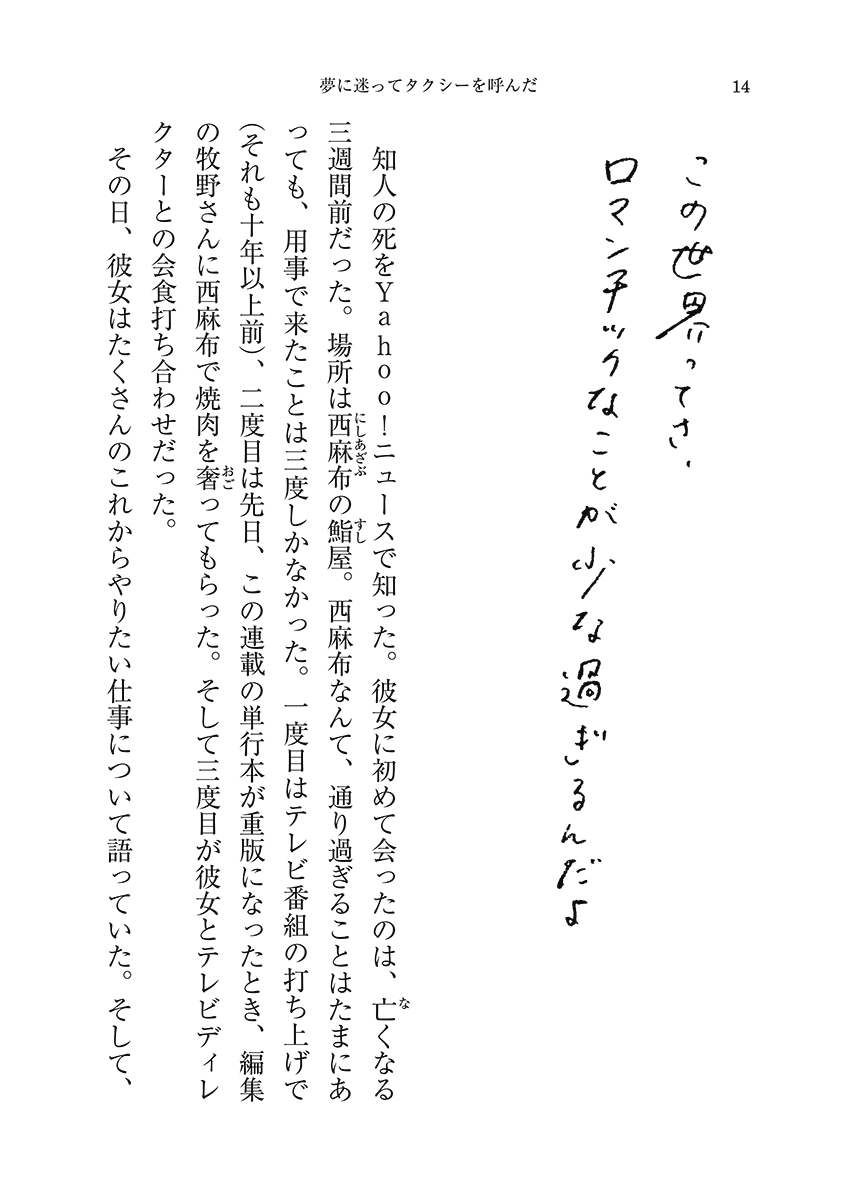 夢に迷ってタクシーを呼んだ
14
この世界ってさ、
ロマンチックなことが少な過ぎるんだよ
知人の死をYahoo!ニュースで知った。彼女に初めて会ったのは、亡くなる
三週間前だった。場所は西麻布の鮨屋。西麻布なんて、通り過ぎることはたまにあ
っても、用事で来たことは三度しかなかった。一度目はテレビ番組の打ち上げで
(それも十年以上前)、二度目は先日、この連載の単行本が重版になったとき、編集
の牧野さんに西麻布で焼肉を奢ってもらった。そして三度目が彼女とテレビディレ
クターとの会食打ち合わせだった。
その日、彼女はたくさんのこれからやりたい仕事について語っていた。そして、